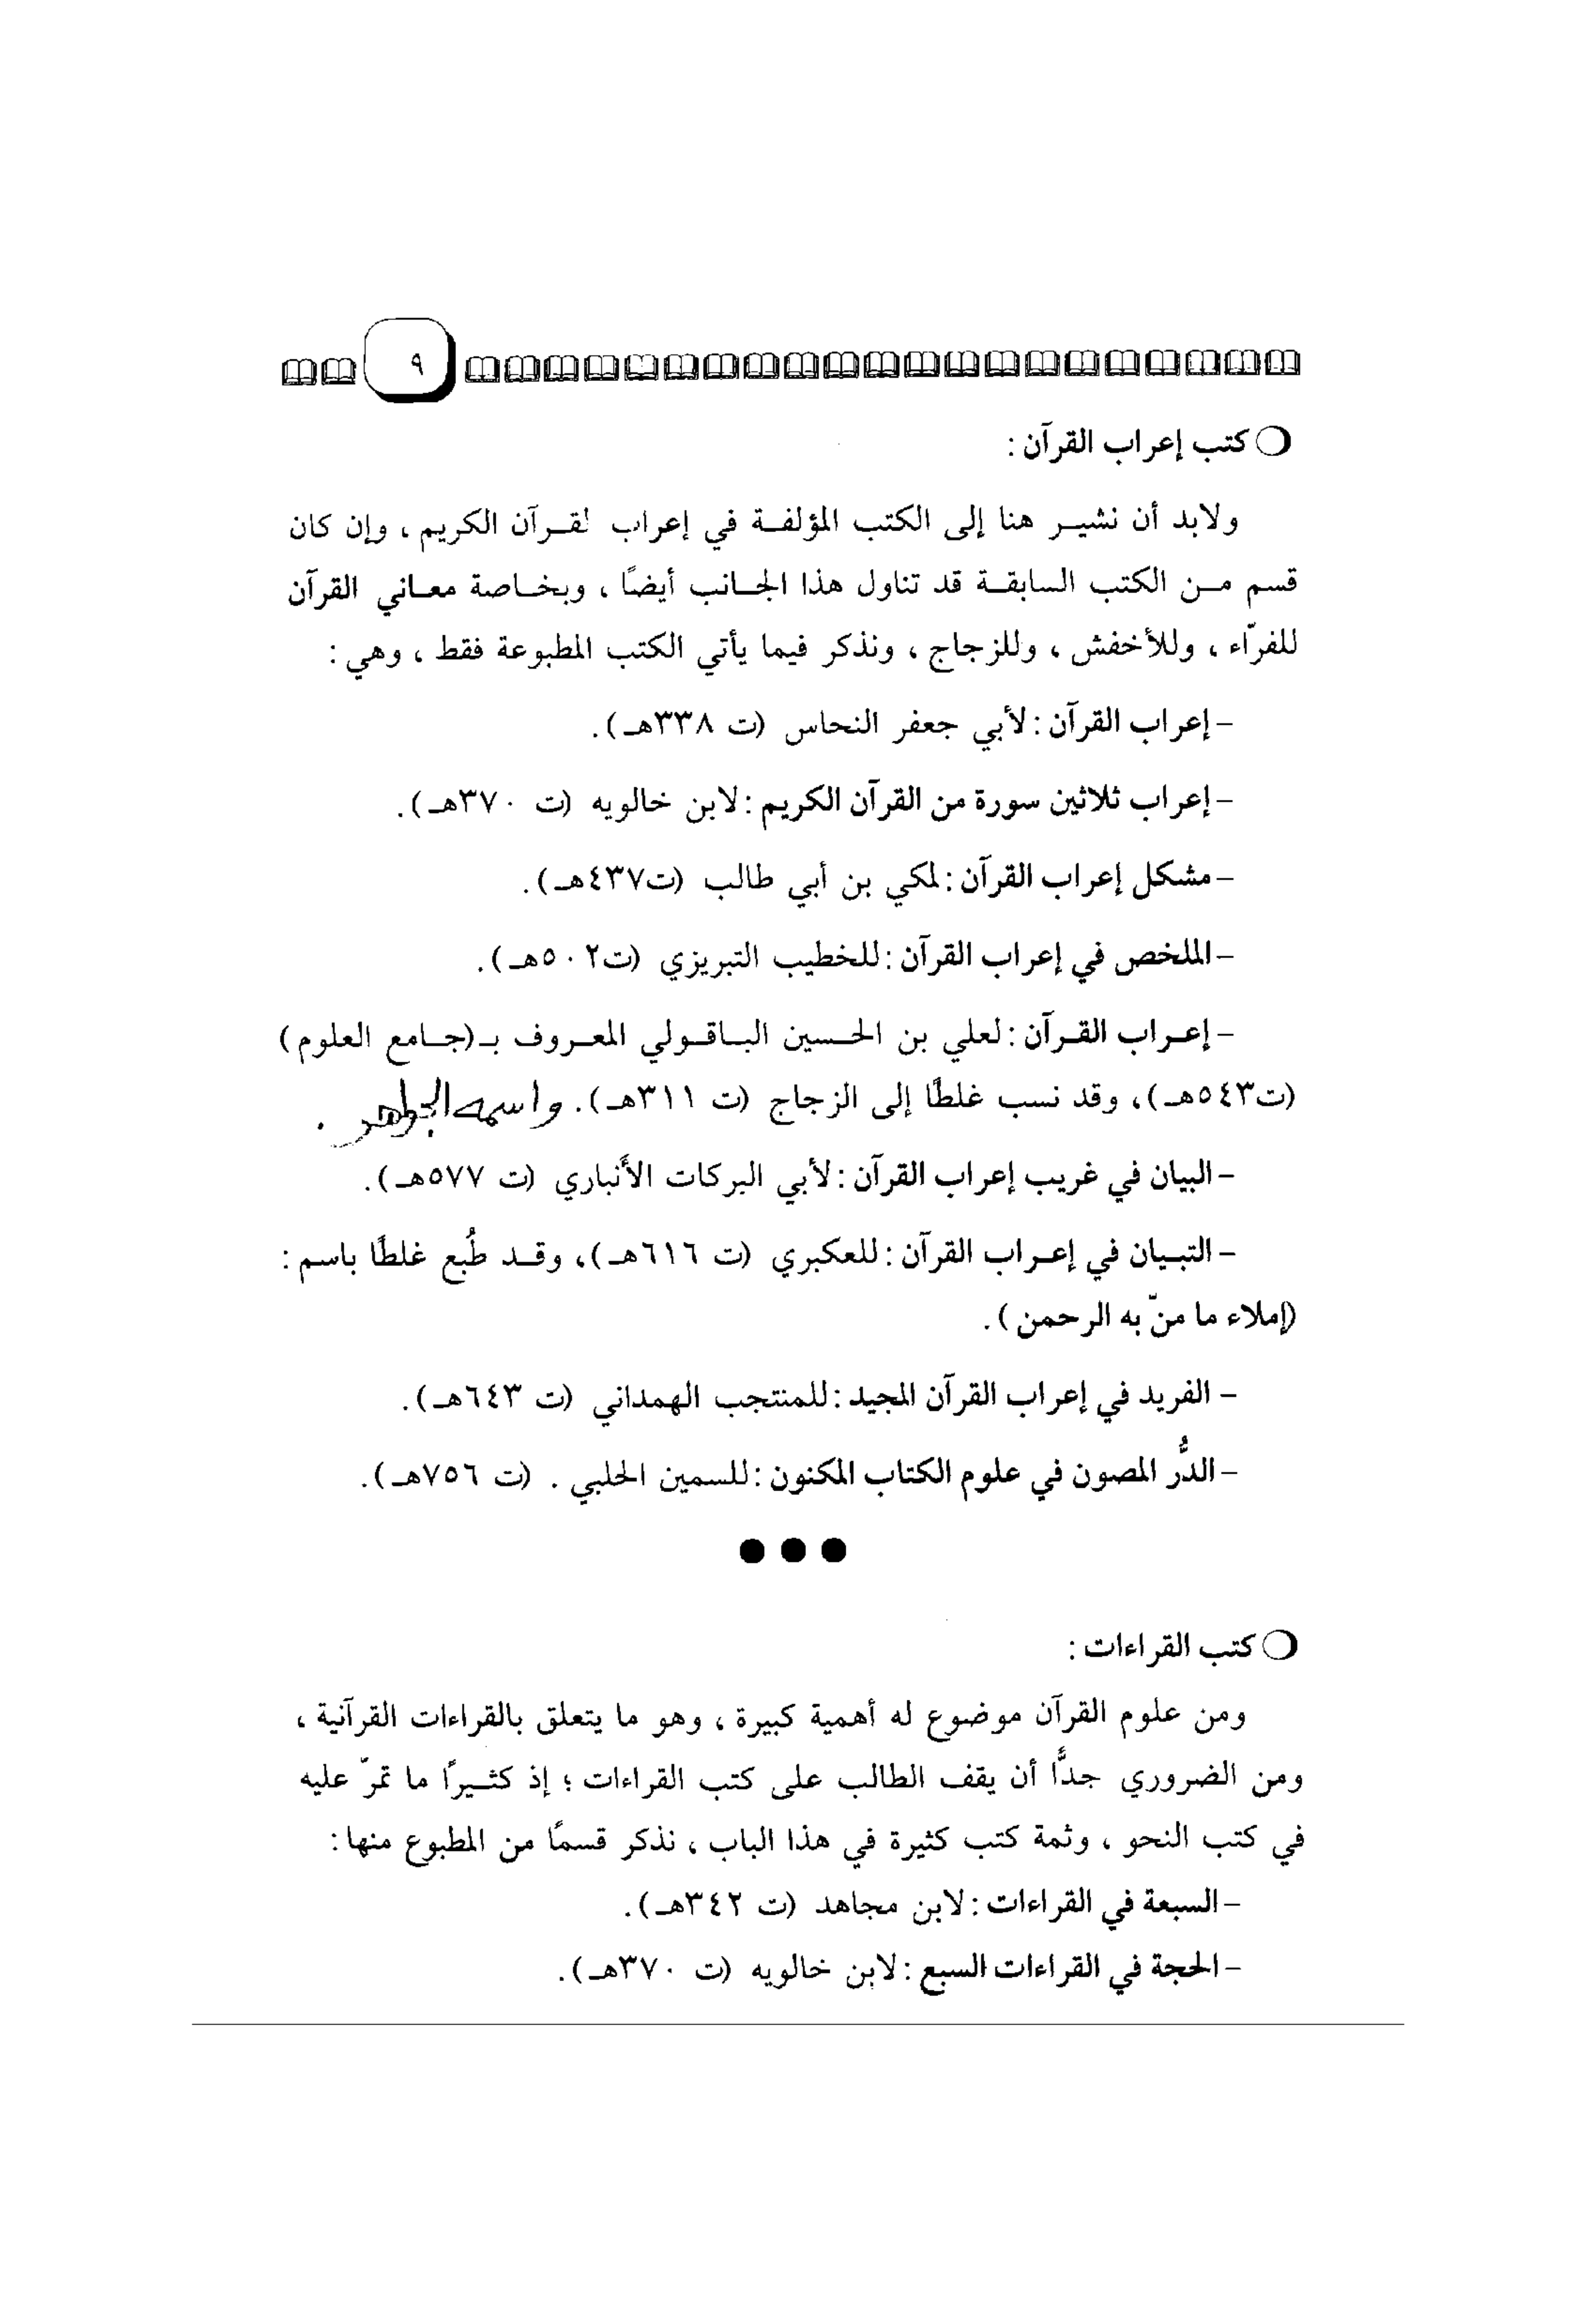 ٩
كتب إعراب القرآن :
ولابد أن نشير هنا إلى الكتب المؤلفة في إعراب لقرآن الكريم ، وإن كان
قسم من الكتب السابقة قد تناول هذا الجانب أيضًا ، وبخاصة معاني القرآن
للفرّاء ، وللأخفش ، وللزجاج ، ونذكر فيما يأتي الكتب المطبوعة فقط ، وهي :
- إعراب القرآن : لأبي جعفر النحاس (ت ٣٣٨هـ).
- إعراب ثلاثين سورة من القرآن الكريم : لابن خالويه (ت ٣٧٠هـ).
- مشكل إعراب القرآن : لمكي بن أبي طالب (ت٤٣٧هـ).
- الملخص في إعراب القرآن : للخطيب التبريزي (ت٥٠٢هـ).
- إعراب القرآن : لعلي بن الحسين الباقولي المعروف بـ(جامع العلوم)
(ت٥٤٣هـ)، وقد نسب غلطًا إلى الزجاج (ت ٣١١هـ). واسمه الجواهر .
- البيان في غريب إعراب القرآن : لأبي البركات الأنباري (ت ٥٧٧هـ).
- التبيان في إعراب القرآن : للعكبري (ت ٦١٦هـ)، وقد طُبع غلطًا باسم :
(إملاء ما منّ به الرحمن ) .
- الفريد في إعراب القرآن المجيد : للمنتجب الهمداني (ت ٦٤٣هـ).
- الدُّر المصون في علوم الكتاب المكنون : للسمين الحلبي . (ت ٧٥٦هـ).
كتب القراءات :
ومن علوم القرآن موضوع له أهمية كبيرة ، وهو ما يتعلق بالقراءات القرآنية ،
ومن الضروري جدًّا أن يقف الطالب على كتب القراءات ؛ إذ كثيرًا ما تمرّ عليه
في كتب النحو ، وثمة كتب كثيرة في هذا الباب ، نذكر قسمًا من المطبوع منها :
- السبعة في القراءات : لابن مجاهد (ت ٣٤٢هـ).
- الحجة في القراءات السبع : لابن خالويه (ت ٣٧٠هـ).